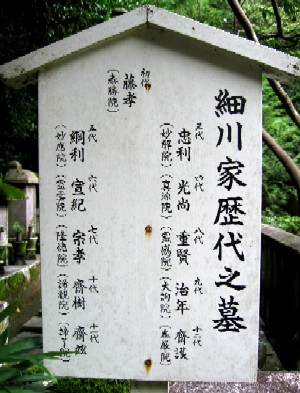 細川家歴代之墓
三代 四代 八代 九代 十二代
忠利 光尚 重賢 治年 齊護
(妙解院) (真源院) (霊感院) (大詢院) (泰厳院)
初代
藤孝
(泰勝院)
五代 六代 七代 十代 十一代
綱利 宣紀 宗孝 齊樹 齊茲
(妙應院) (霊雲院) (隆徳院) (諦観院) (諦了院)